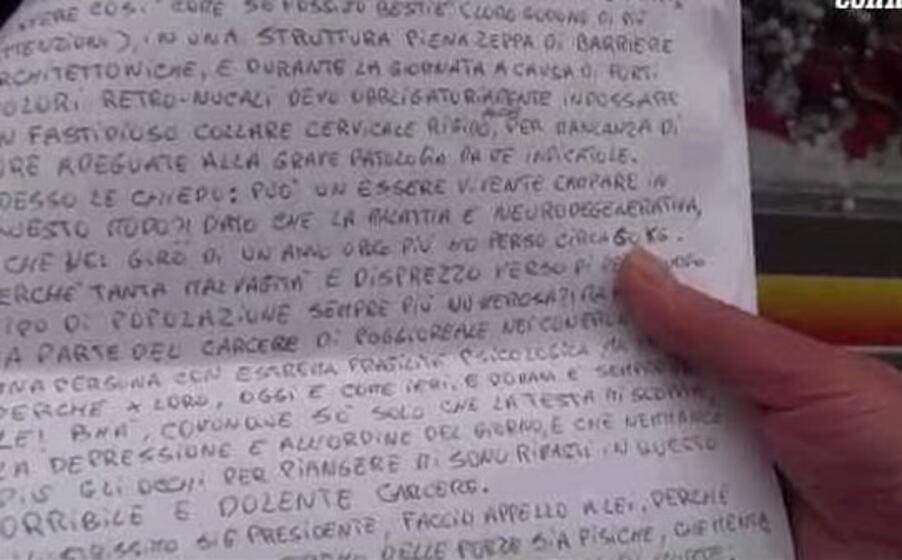 COSI' COME SE FOSSIMO BESTIE (LORO GODONO DI PIÙ
ATTENZIONI), IN UNA STRUTTURA PIENA ZEPPA DI BARRIERE
RCHITETTONICHE, E DURANTE LA GIORNATA A CAUSA DI FORTI
DOLORI RETRO-NUCALI DEVO OBBLIGATORIAMENTE INDOSSARE
N FASTIDIOSO COLLARE CERVICALE RIGIDO, PER MANCANZA DI
URE ADEGUATE ALLA GRAVE PATOLOGIA DA INDICATOLE.
DESSO LE CHIEDO: PUO' UN ESSERE VIVENTE CAMPARE IN
QUESTO MODO?! DATO CHE LA MALATTIA E NEURODEGENERATIVA,
CHE NEL GIRO DI UN ANNO PIÙ HO PERSO CIRCA KG.
ERCHE' TANTA MALVAGITA' E DISPREZZO VERSO
IPO DI POPOLAZIONE SEMPRE PIÙ NUMEROSA
A PARTE DEL CARCERE DI POGGIOREALE NEI
UNA PERSONA CON ESTREMA FRAGILITÀ PSICOLOGICA
PERCHE X LORO, OGGI E COME IERI, E DOMANI E
LE! BHA', COMUNQUE SO SOLO CHE LA TESTA MI
LA DEPRESSIONE E ALL'ORDINE DEL GIORNO, E CHE NEMMANCO
PIÙ GLI OCCHI PER PIANGERE MI SONO RIMASTI IN QUESTO
ORRIBILE E DOLENTE CARCERE.
SIG PRESIDENTE, FACCIO APPELLO A LEI, PERCHÉ
DELLE FORZE SIA FISICHE, CHE